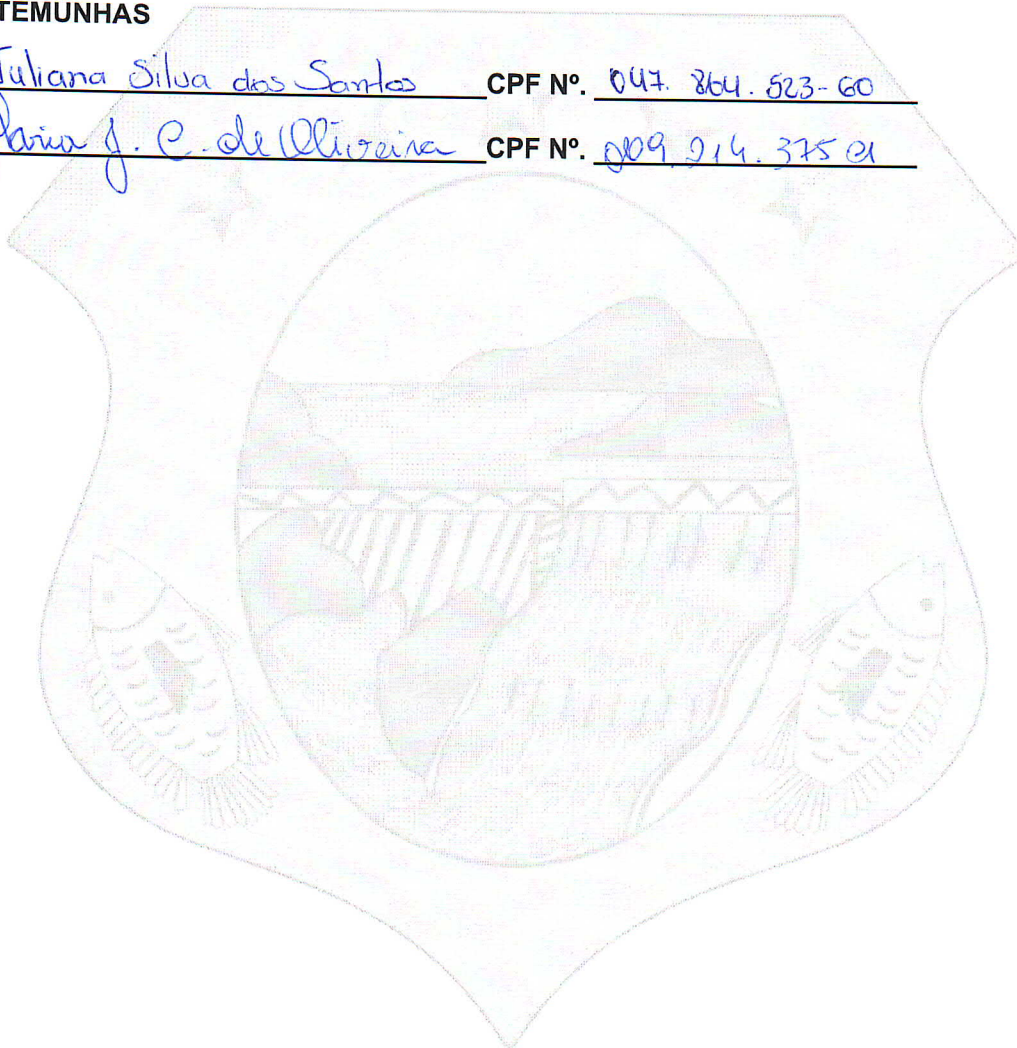 TEMUNHAS
Juliana Silva dos Santos CPF Nº. 047. 864. 523-60
Maria J. C. de Oliveira CPF Nº. 009 214. 375 01